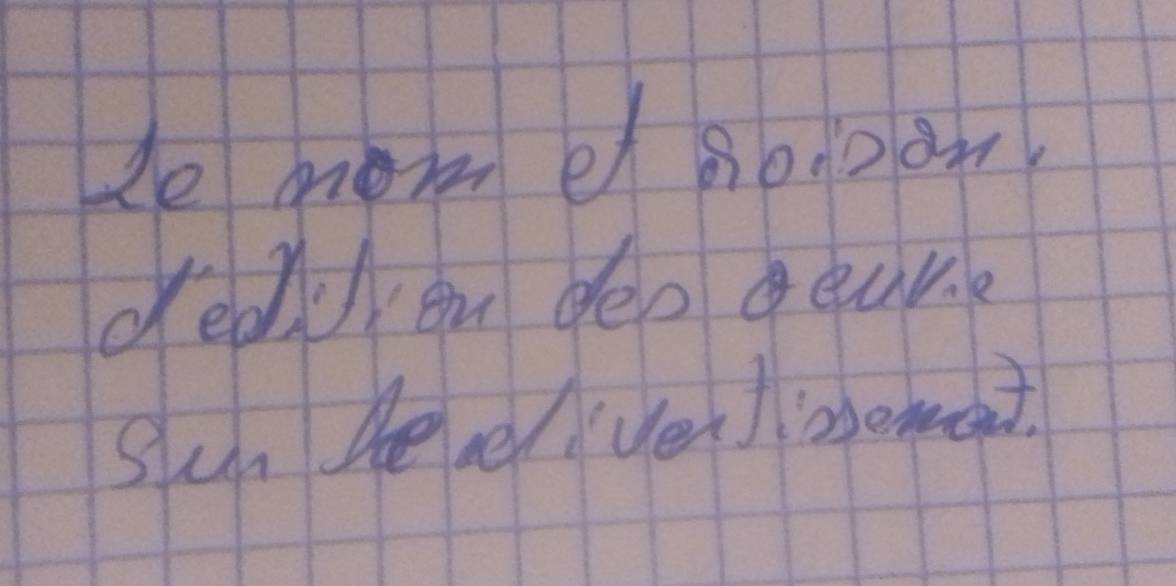 Le nom et Saison.
d'edition des oeuvre
Sur le divertissement.